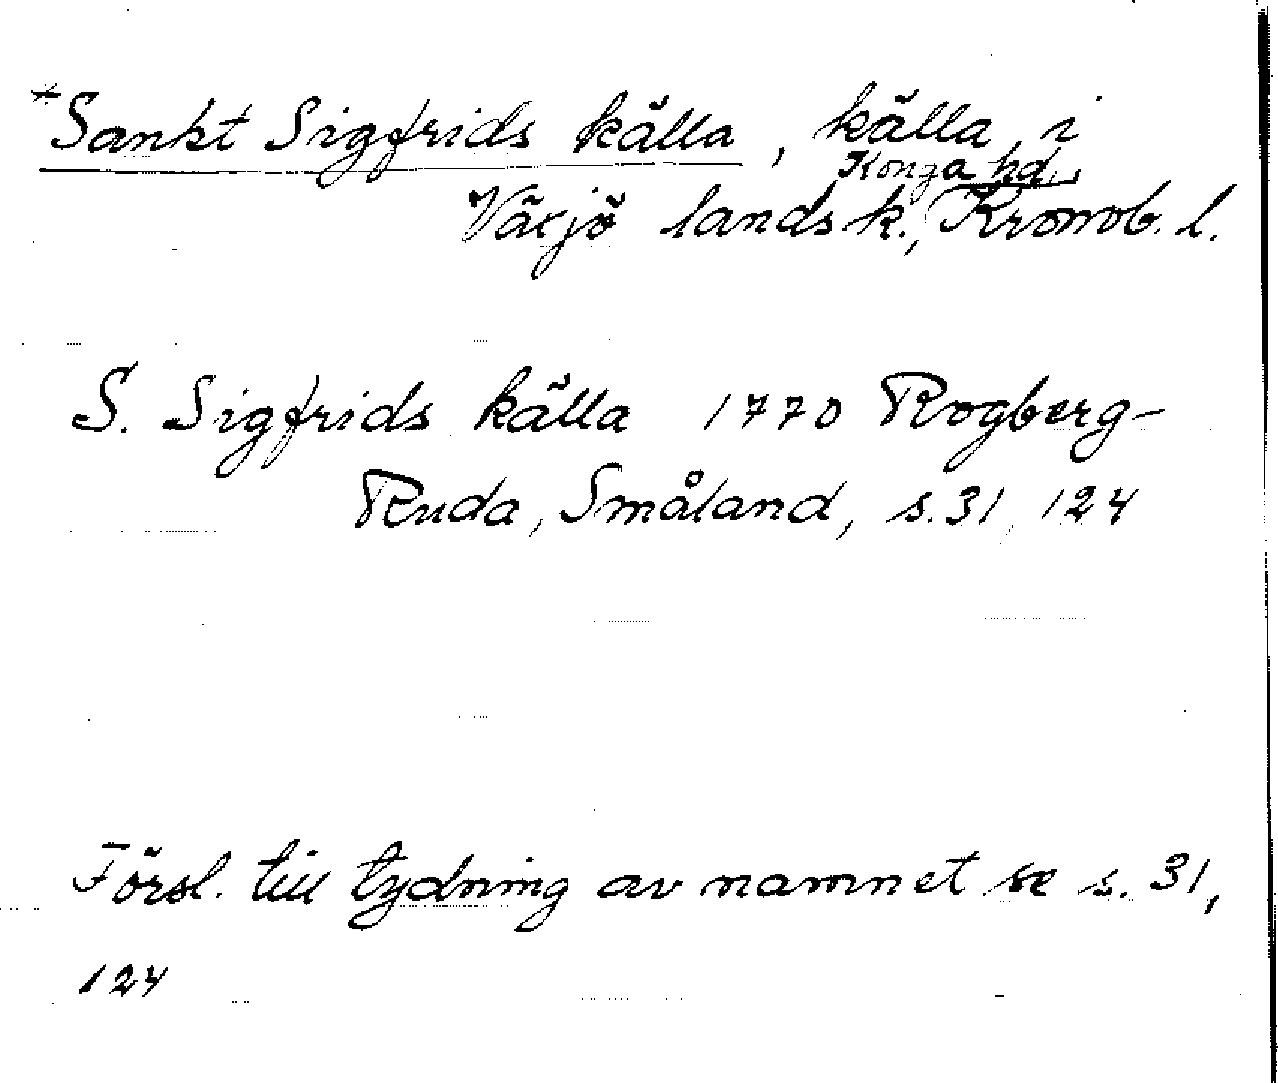 *Sankt Sigfrids källa, källa, i
Konga hd.,
Växjö landsk., Kronob. l.
S. Sigfrids källa 1770 Rogberg-
Ruda, Småland, s. 31, 124
Försl. till tydning av namnet se s. 31,
124